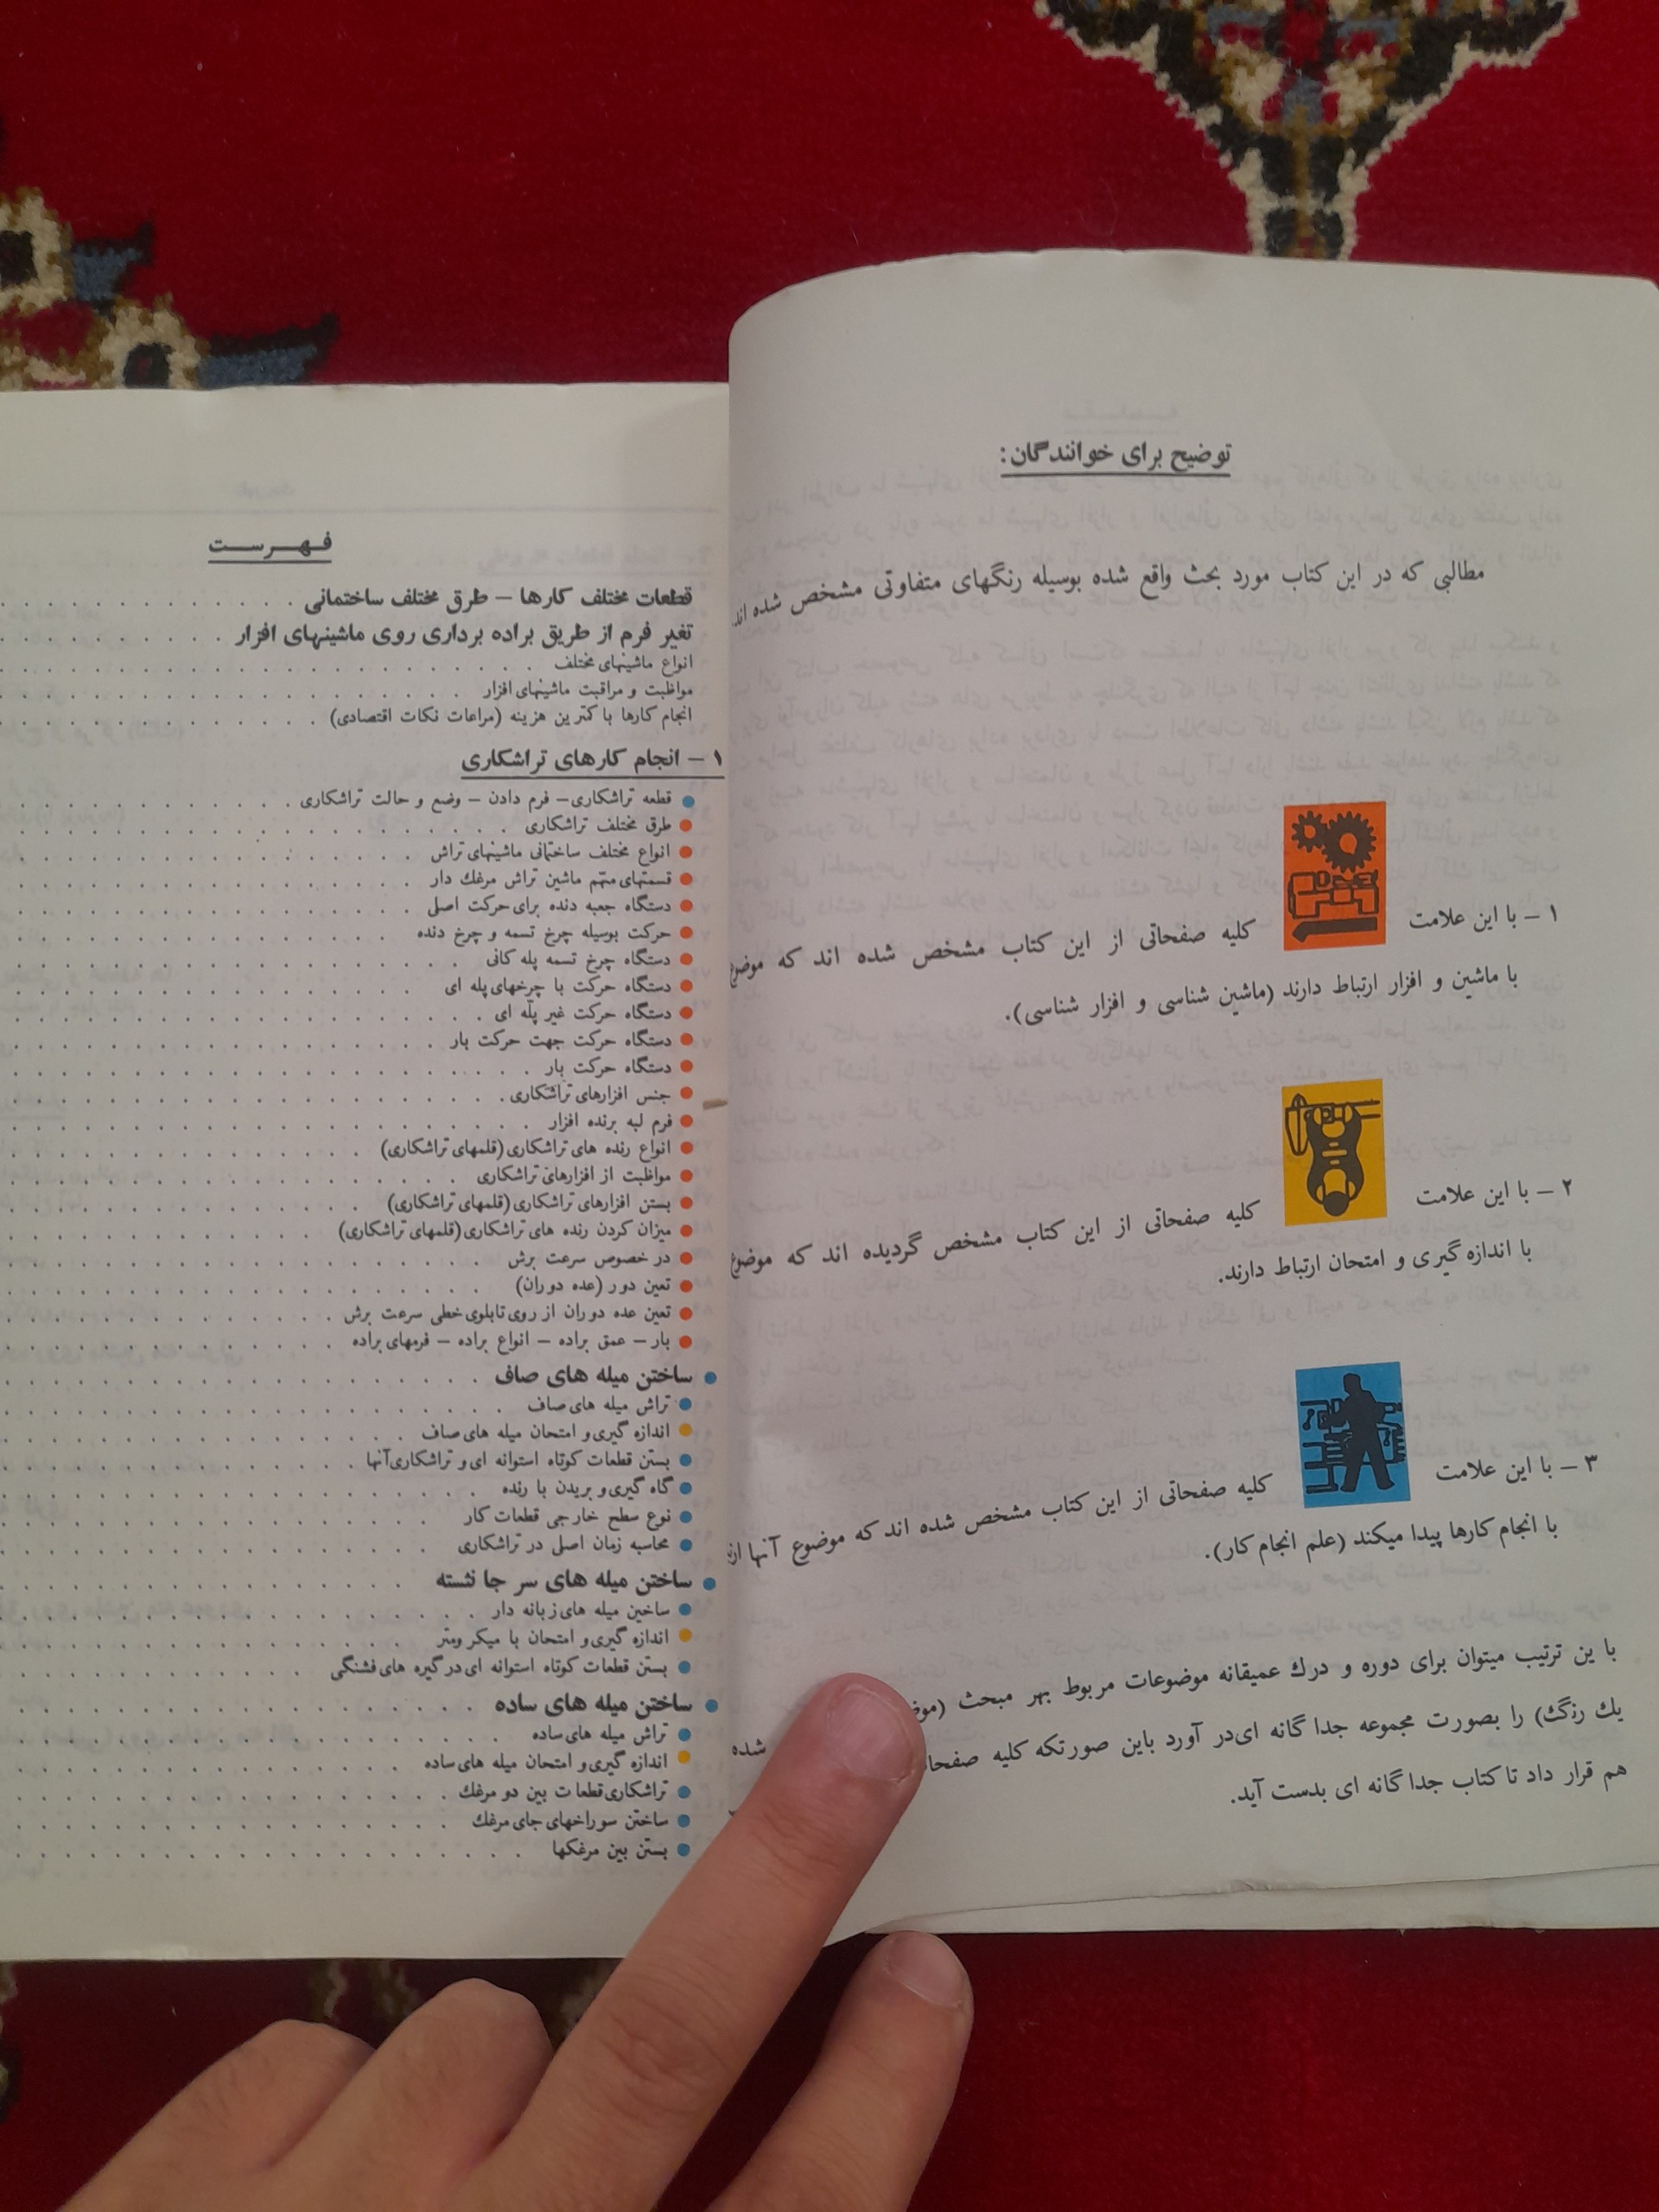 توضیح برای خوانندگان:
مطالبی که در این کتاب مورد بحث واقع شده بوسیله رنگهای متفاوتی مشخص شده اند
۱ – با این علامت کلیه صفحاتی از این کتاب مشخص شده اند که موضوع
با ماشین و افزار ارتباط دارند (ماشین شناسی و افزار شناسی).
۲ – با این علامت کلیه صفحاتی از این کتاب مشخص گردیده اند که موضوع
با اندازه گیری و امتحان ارتباط دارند.
۳ – با این علامت کلیه صفحاتی از این کتاب مشخص شده اند که موضوع آنها
با انجام کارها پیدا میکند (علم انجام کار).
با ین ترتیب میتوان برای دوره و درك عمیقانه موضوعات مربوط بهر مبحث
یك رنگ) را بصورت مجموعه جدا گانه ای در آورد باین صورتکه کلیه شده
هم قرار داد تا کتاب جدا گانه ای بدست آید.
فهرست
قطعات مختلف کارها – طرق مختلف ساختمانی
تغیر فرم از طریق براده برداری روی ماشینهای افزار
انواع ماشینهای مختلف
مواظبت و مراقبت ماشینهای افزار
انجام کارها با کمترین هزینه (مراعات نکات اقتصادی)
۱ – انجام کارهای تراشکاری
قطعه تراشکاری – فرم دادن – وضع و حالت تراشکاری
طرق مختلف تراشکاری
انواع مختلف ساختمانی ماشینهای تراش
قسمتهای متهم ماشین تراش مرغك دار
دستگاه جعبه دنده برای حرکت اصلی
حرکت بوسیله چرخ تسمه و چرخ دنده
دستگاه چرخ تسمه پله کانی
دستگاه حرکت با چرخهای پله ای
دستگاه حرکت غیر پلّه ای
دستگاه حرکت جهت حرکت بار
دستگاه حرکت بار
جنس افزارهای تراشکاری
فرم لبه برنده افزار
انواع رنده های تراشکاری (قلمهای تراشکاری)
مواظبت از افزارهای تراشکاری
بستن افزارهای تراشکاری (قلمهای تراشکاری)
میزان کردن رنده های تراشکاری (قلمهای تراشکاری)
در خصوص سرعت برش
تعین دور (عده دوران)
تعین عده دوران از روی تابلوی خطی سرعت برش
بار – عمق براده – انواع براده – فرمهای براده
ساختن میله های صاف
تراش میله های صاف
اندازه گیری و امتحان میله های صاف
بستن قطعات کوتاه استوانه ای و تراشکاری آنها
گاه گیری و بریدن با رنده
نوع سطح خارجی قطعات کار
محاسبه زمان اصلی در تراشکاری
ساختن میله های سر جا نشسته
ساخین میله های زبانه دار
اندازه گیری و امتحان با میکر ومتر
بستن قطعات کوتاه استوانه ای در گیره های فشنگی
ساختن میله های ساده
تراش میله های ساده
اندازه گیری و امتحان میله های ساده
تراشکاری قطعات بین دو مرغك
ساختن سوراخهای جای مرغك
بستن بین مرغکها